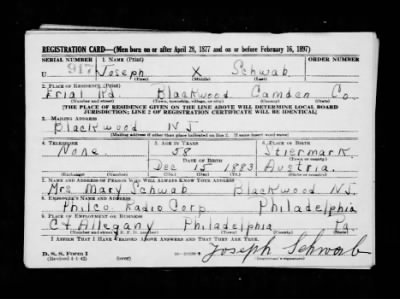 REGISTRATION CARD—(Men born on or after April 28, 1877 and on or before February 16, 1897)
SERIAL NUMBER 1. NAME (Print) ORDER NUMBER
917 Joseph X Schwab
(First) (Middle) (Last)
2. PLACE OF RESIDENCE (Print)
Erial Rd. Blackwood Camden Co.
(Number and street) (Town, township, village, or city) (County) (State)
[THE PLACE OF RESIDENCE GIVEN ON THE LINE ABOVE WILL DETERMINE LOCAL BOARD
JURISDICTION; LINE 2 OF REGISTRATION CERTIFICATE WILL BE IDENTICAL]
3. MAILING ADDRESS
Blackwood NJ
[Mailing address if other than place indicated on line 2. If same insert word same]
4. TELEPHONE 5. AGE IN YEARS 6. PLACE OF BIRTH
None 58 Stiermark
DATE OF BIRTH (Town or county)
Dec 15 1883 Austria
(Mo.) (Day) (Yr.) (State or country)
7. NAME AND ADDRESS OF PERSON WHO WILL ALWAYS KNOW YOUR ADDRESS
Mrs Mary Schwab Blackwood NJ.
8. EMPLOYER'S NAME AND ADDRESS
Philco Radio Corp. Philadelphia
9. PLACE OF EMPLOYMENT OR BUSINESS
C & Allegany Philadelphia Pa.
(Number and street or R. F. D. number) (Town) (County) (State)
I AFFIRM THAT I HAVE VERIFIED ABOVE ANSWERS AND THAT THEY ARE TRUE.
D. S. S. Form 1
(Revised 4-1-42) (over) Joseph Schwab
(Registrant's signature)